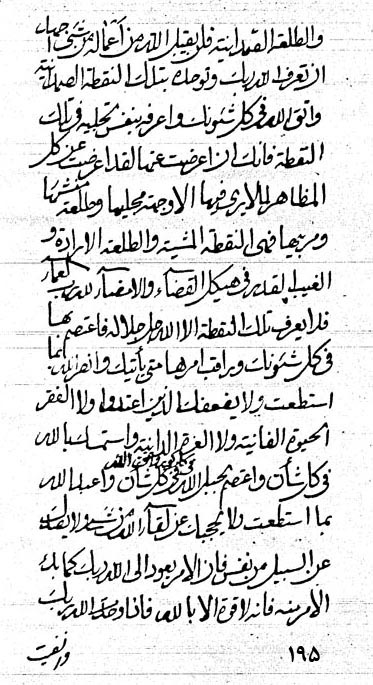 والطلعة القمدانية فلن يقبل الله من أعماله من شيء اجهل
ان تعرف الله ربك وتوحده بتلك النقطة الصمدانية
واتق الله في كل شئونك واعرفه بنفس تجليه في تلك
النقطة فانك ان اعرضت عنها لقد اعرضت عن كل
المظاهر اذ لا يرى فيها الا وجهة مجليها وطلعة منشئها
ومربيها فهي النقطة المشية والطلعة الارادة و
الغيب القدر في هيكل القضاء والامضاء لله رب العماء
فلا يعرف تلك النقطة الا الله جل جلاله فاعتصم بها
في كل شئونك وراقب امرها متى يأتيك وانصر الله بما
استطعت ولا يضعفك الذين اعتدوا ولا الفقر
الحيوة الفانية ولا العزة الداثية واستمسك بالله
في كل شأن واعتصم بحبل الله في كل شأن واعبد الله
بما استطعت ولا يحجبك عن لقاء الله من شيء ولا يضلك
عن السبيل من نفس فان الامر يعود الى الله ربك كما بدء
الامر منه فانه لا قوة الا بالله فاذا وحدت الله ربك
١٩٥